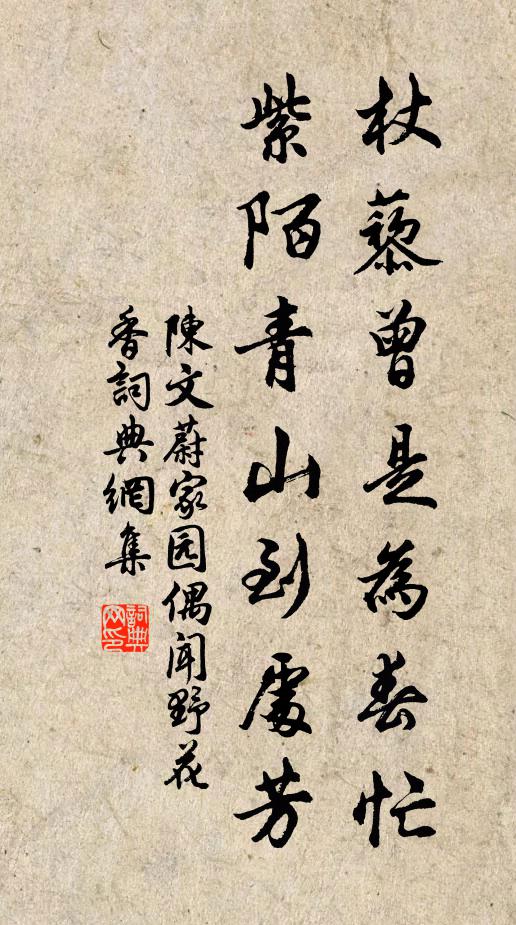 杖藜曾是為春忙
紫陌青山到處芳
陳文蔚家园偶聞野花
香詞典網集
詞典网印